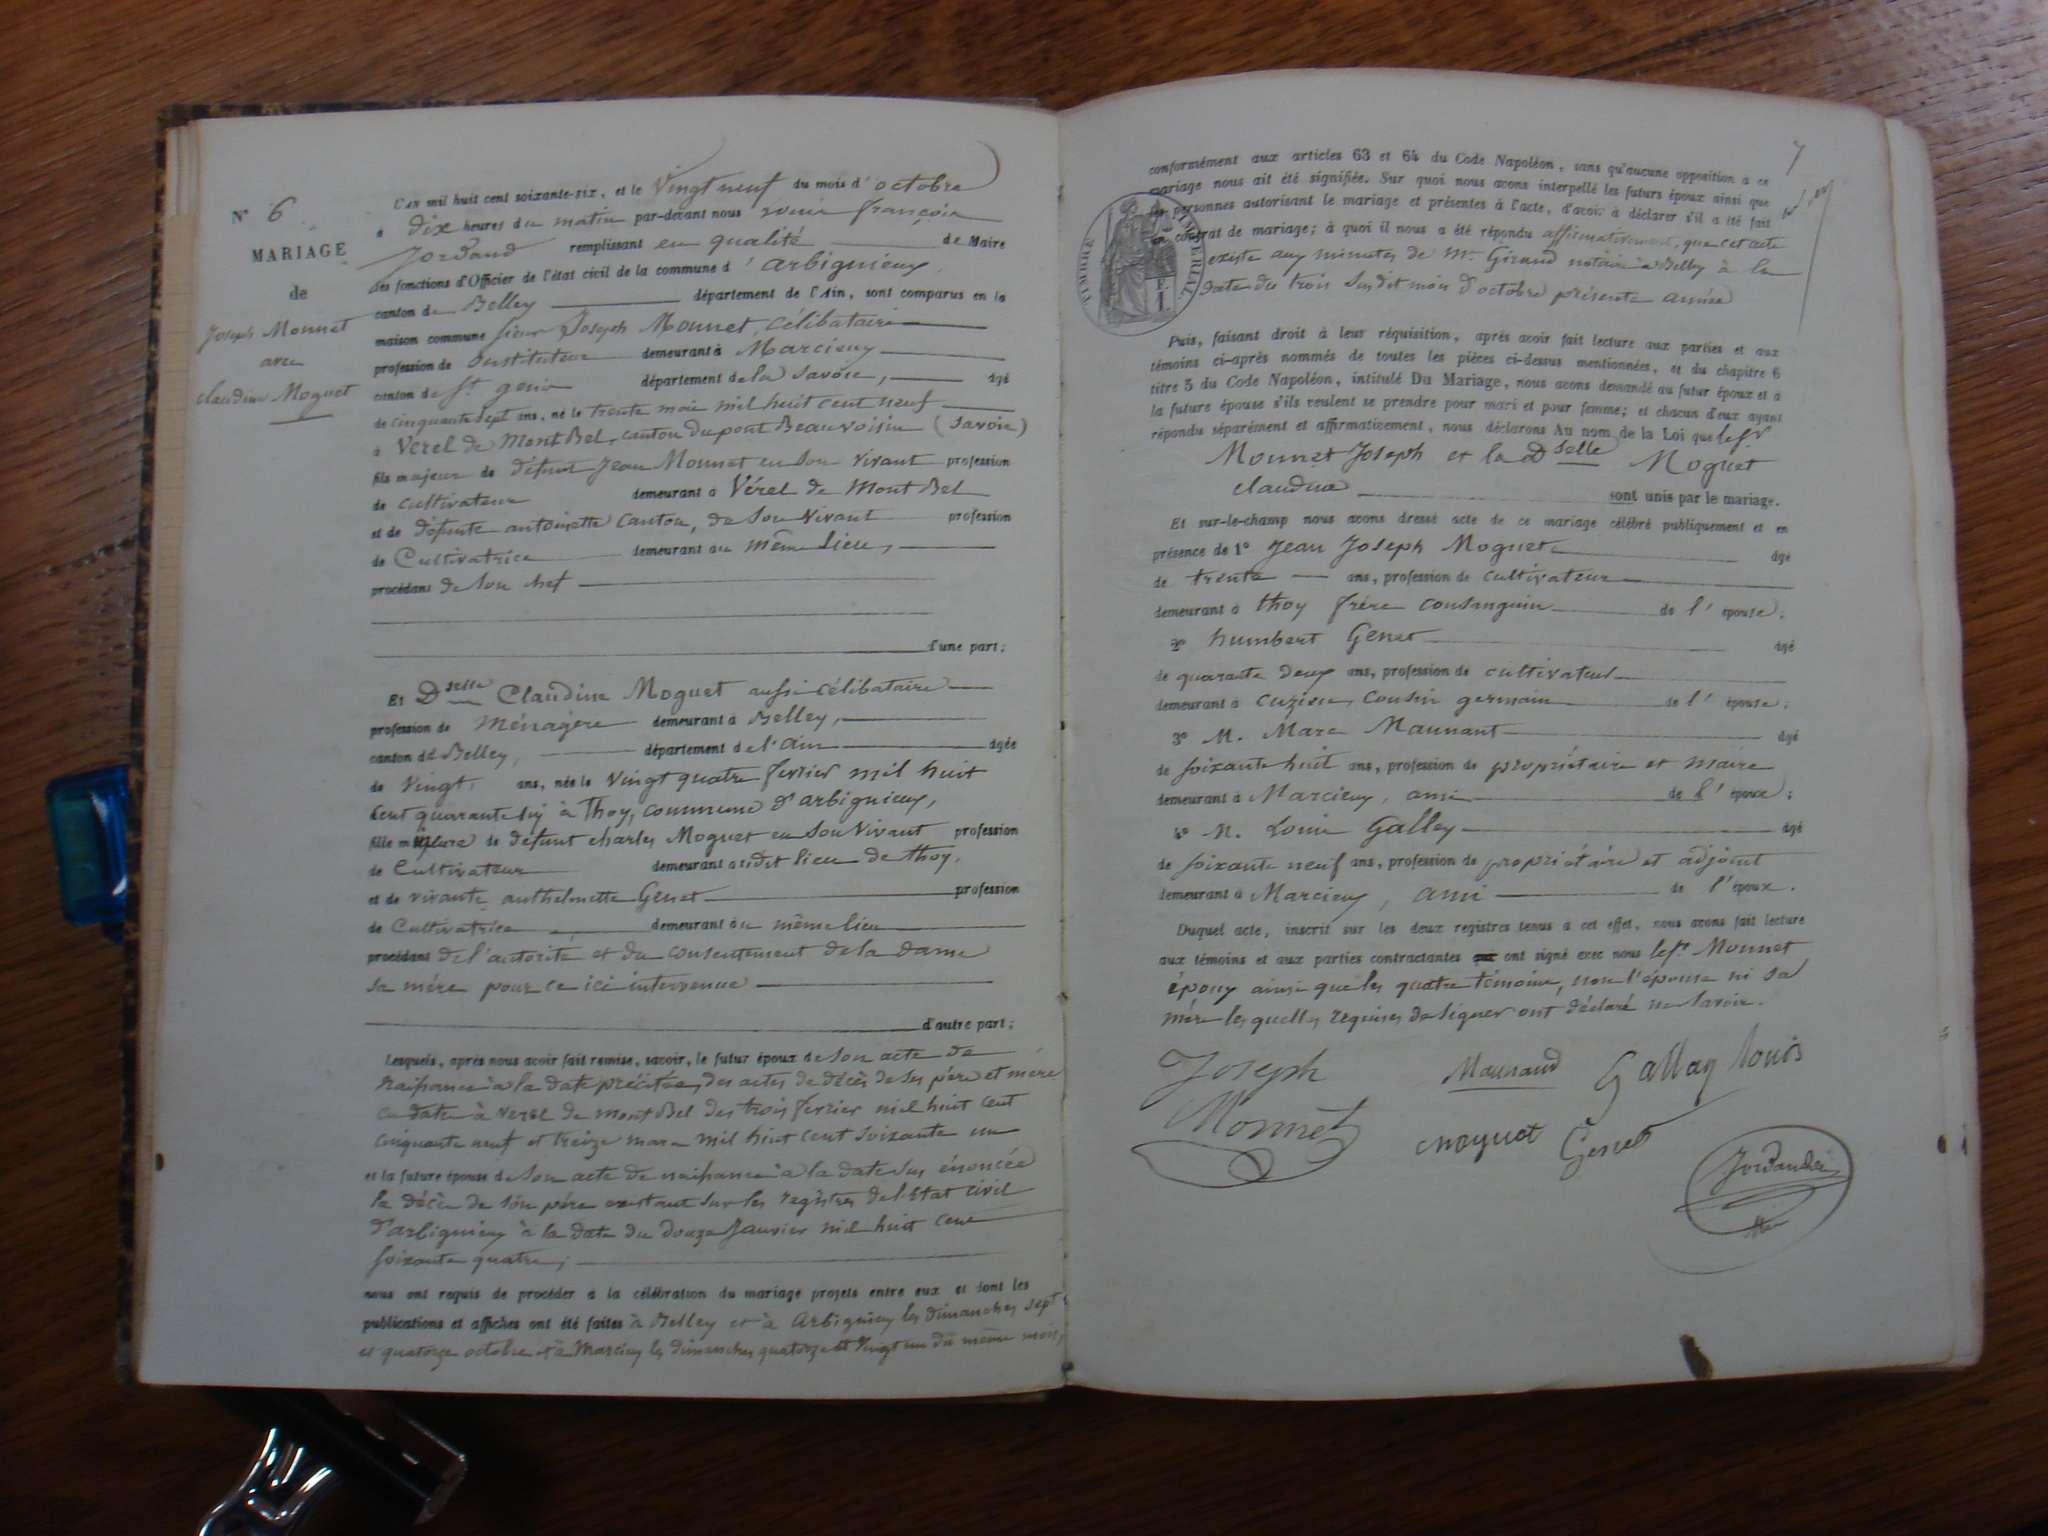 L'an mil huit cent soixante-six, et le Vingt neuf du mois d'octobre
N° 6
à dix heures du matin par-devant nous françois
MARIAGE
Jordand remplissant en qualité de Maire
de
les fonctions d'Officier de l'état civil de la commune d'arbignieux,
Joseph Monnet
canton de Belley département de l'Ain, sont comparus en la
avec
maison commune sieur Joseph Monnet, célibataire
claudine Moguet
profession de Instituteur demeurant à Marcieux
canton de St genix département de la Savoie, âgé
de cinquante sept ans, né le trente mai mil huit cent neuf
à Verel de MontBel, canton du pont Beauvoisin (Savoie)
fils majeur de défunt Jean Monnet en son vivant profession
de cultivateur demeurant à Vérel de MontBel
et de défunte antoinette Canton, de Son Vivant profession
de Cultivatrice demeurant au même lieu,
procédant de Son chef
d'une part;
Et Dselle Claudine Moguet aussi célibataire
profession de ménagère demeurant à Belley,
canton de Belley, département de l'ain âgée
de Vingt ans, née le vingt quatre février mil huit
cent quarante six à Thoy, commune d'arbignieux,
fille mineure de défunt charles Moguet en Son Vivant profession
de Cultivateur demeurant audit lieu de thoy,
et de vivante anthelmette Genet profession
de Cultivatrice demeurant au même lieu
procédant de l'autorité et du consentement de la dame
sa mère pour ce ici intervenue
d'autre part;
Lesquels, après nous avoir fait remise, savoir, le futur époux de Son acte de
naissance à la date précitée, des actes de décès de ses père et mère
en date à Verel de MontBel des trois février mil huit cent
cinquante neuf et treize mars mil huit cent soixante un
et la future épouse de Son acte de naissance à la date sus énoncée
le décès de son père existant sur les registres de l'Etat civil
d'arbignieux à la date du douze Janvier mil huit cent
soixante quatre;
nous ont requis de procéder à la célébration du mariage projeté entre eux et dont les
publications et affiches ont été faites à Belley et à Arbignieux les dimanches sept
et quatorze octobre et à Marcieux les dimanches quatorze et vingt un du même mois,
7
conformément aux articles 63 et 64 du Code Napoléon, sans qu'aucune opposition à ce
mariage nous ait été signifiée. Sur quoi nous avons interpellé les futurs époux ainsi que
les personnes autorisant le mariage et présentes à l'acte, d'avoir à déclarer s'il a été fait
un contrat de mariage; à quoi il nous a été répondu affirmativement, que cet acte
existe aux minutes de Mr Giraud notaire à Belley à la
date du trois susdit mois d'octobre présente année
TIMBRE IMPÉRIAL
F.
1
Puis, faisant droit à leur réquisition, après avoir fait lecture aux parties et aux
témoins ci-après nommés de toutes les pièces ci-dessus mentionnées, et du chapitre 6
titre 5 du Code Napoléon, intitulé Du Mariage, nous avons demandé au futur époux et à
la future épouse s'ils veulent se prendre pour mari et pour femme; et chacun d'eux ayant
répondu séparément et affirmativement, nous déclarons Au nom de la Loi que le Sr
Monnet Joseph et la Dselle Moguet
claudine sont unis par le mariage.
Et sur-le-champ nous avons dressé acte de ce mariage célébré publiquement et en
présence de 1° Jean Joseph Moguet âgé
de trente ans, profession de cultivateur
demeurant à thoy frère consanguin de l'épouse;
2° humbert Genet âgé
de quarante deux ans, profession de cultivateur
demeurant à cuzieu, cousin germain de l'épouse;
3° M. Marc Maunant âgé
de soixante huit ans, profession de propriétaire et maire
demeurant à Marcieux, ami de l'époux;
4° M. Louis Galley âgé
de soixante neuf ans, profession de propriétaire et adjoint
demeurant à Marcieux, ami de l'époux.
Duquel acte, inscrit sur les deux registres tenus à cet effet, nous avons fait lecture
aux témoins et aux parties contractantes ont signé avec nous le Sr Monnet
époux ainsi que les quatre témoins, non l'épouse ni sa
mère lesquelles requises de signer ont déclaré ne savoir.
Joseph Maunand Gallay Louis
Monnet moguet Genet